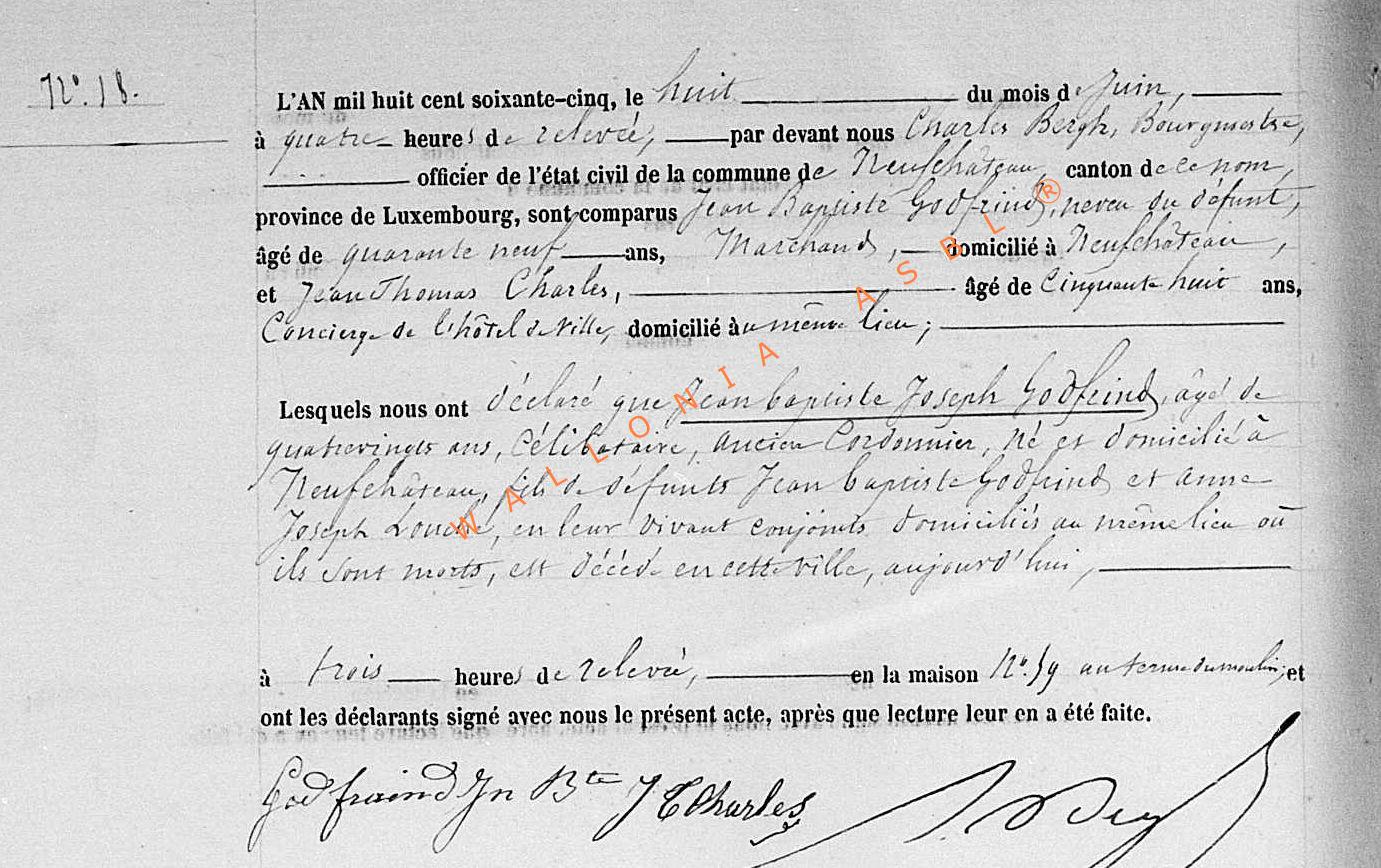 N°. 18.
L'AN mil huit cent soixante-cinq, le huit du mois de Juin,
à quatre heures de relevée, par devant nous Charles Bergh, Bourgmestre,
officier de l'état civil de la commune de Neufchâteau, canton de ce nom,
province de Luxembourg, sont comparus Jean Baptiste Godfrind, neveu du défunt,
âgé de quarante neuf ans, Marchand, domicilié à Neufchâteau,
et Jean Thomas Charles, âgé de Cinquante huit ans,
Concierge de l'hôtel de Ville, domicilié au même lieu;
Lesquels nous ont déclaré que Jean baptiste Joseph Godfrind, âgé de
quatrevingts ans, Célibataire, ancien Cordonnier, né et domicilié à
Neufchâteau, fils de défunts Jean baptiste Godfrind et anne
Joseph Louché, en leur vivant conjoints domiciliés au même lieu où
ils sont morts, est décédé en cette ville, aujourd'hui,
à trois heures de relevée, en la maison N°. 59 au terme du moulin; et
ont les déclarants signé avec nous le présent acte, après que lecture leur en a été faite.
Godfraind Jn Bte JTCharles
WALLONIA ASBL ®